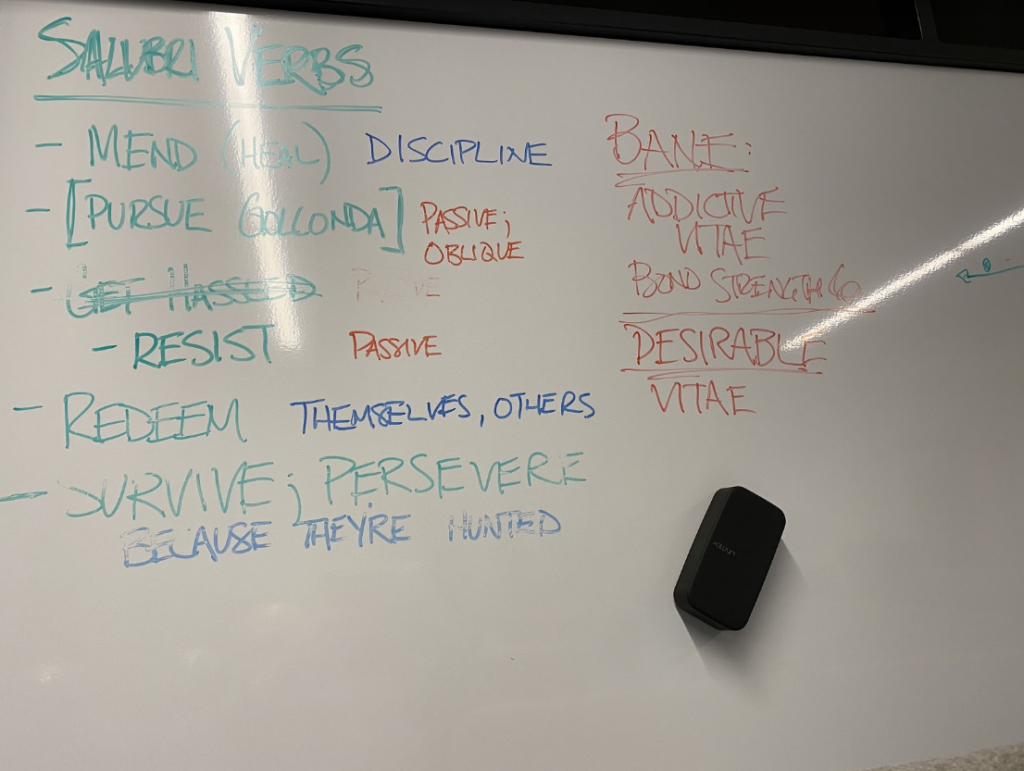 SALUBRI VERBS
- MEND (HEAL) DISCIPLINE
- [PURSUE GOLCONDA] PASSIVE; OBLIQUE
- GET HASSLED
- RESIST PASSIVE
- REDEEM THEMSELVES, OTHERS
- SURVIVE; PERSEVERE
BECAUSE THEY'RE HUNTED
BANE:
ADDICTIVE
VITAE
BOND STRENGTH
DESIRABLE
VITAE